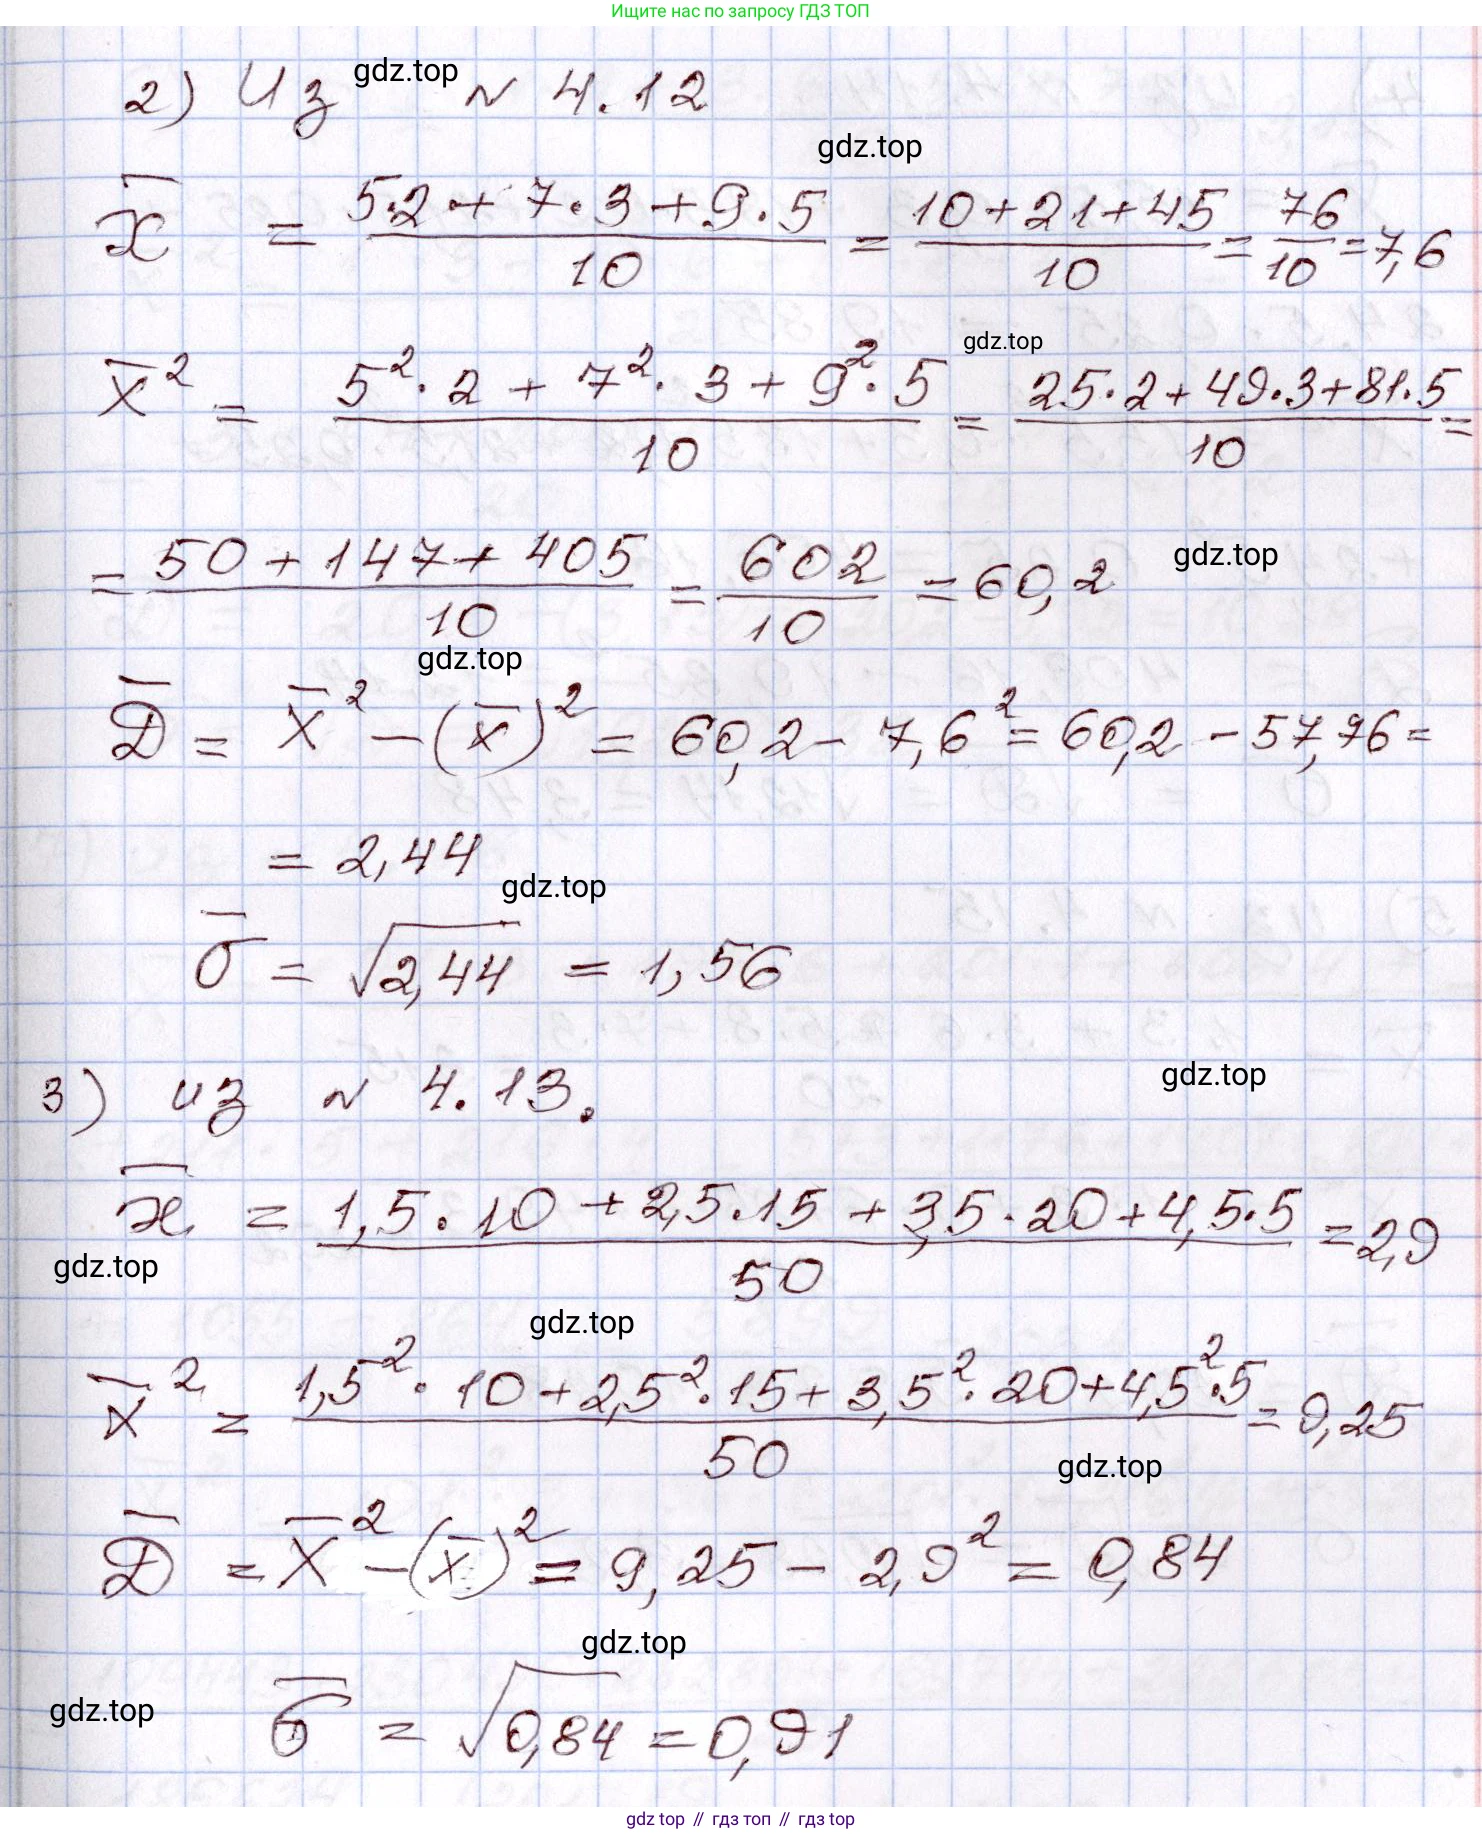 Ищите нас по запросу ГДЗ ТОП
2) Из № 4.12
gdz.top
gdz.top
x̄ = (5·2 + 7·3 + 9·5)/10 = (10+21+45)/10 = 76/10 = 7,6
gdz.top
x̄² = (5²·2 + 7²·3 + 9²·5)/10 = (25·2+49·3+81·5)/10 =
= (50+147+405)/10 = 602/10 = 60,2
gdz.top
gdz.top
D̄ = x̄² – (x̄)² = 60,2 – 7,6² = 60,2 – 57,76 =
= 2,44
gdz.top
σ̄ = √2,44 = 1,56
3) из № 4.13.
gdz.top
x̄ = (1,5·10 + 2,5·15 + 3,5·20 + 4,5·5)/50 = 2,9
gdz.top
gdz.top
x̄² = (1,5²·10 + 2,5²·15 + 3,5²·20 + 4,5²·5)/50 = 9,25
gdz.top
D̄ = x̄² – (x̄)² = 9,25 – 2,9² = 0,84
gdz.top
gdz.top
σ̄ = √0,84 = 0,91
gdz top // гдз топ // гдз top